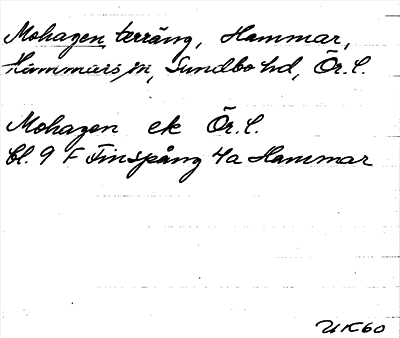 Mohagen terräng, Hammar,
Hammars sn, Sundbo hd, Ör.l.
Mohagen ek Ör.l.
bl. 9 F Finspång 4a Hammar
UK60